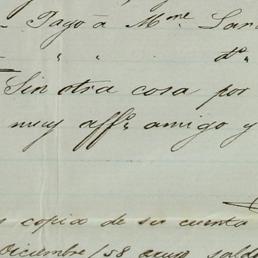 - Pago á Mme Lar
" " do
Sin otra cosa por
muy affo. amigo y
copia de su cuenta
Diciembre /58 cuyo saldo